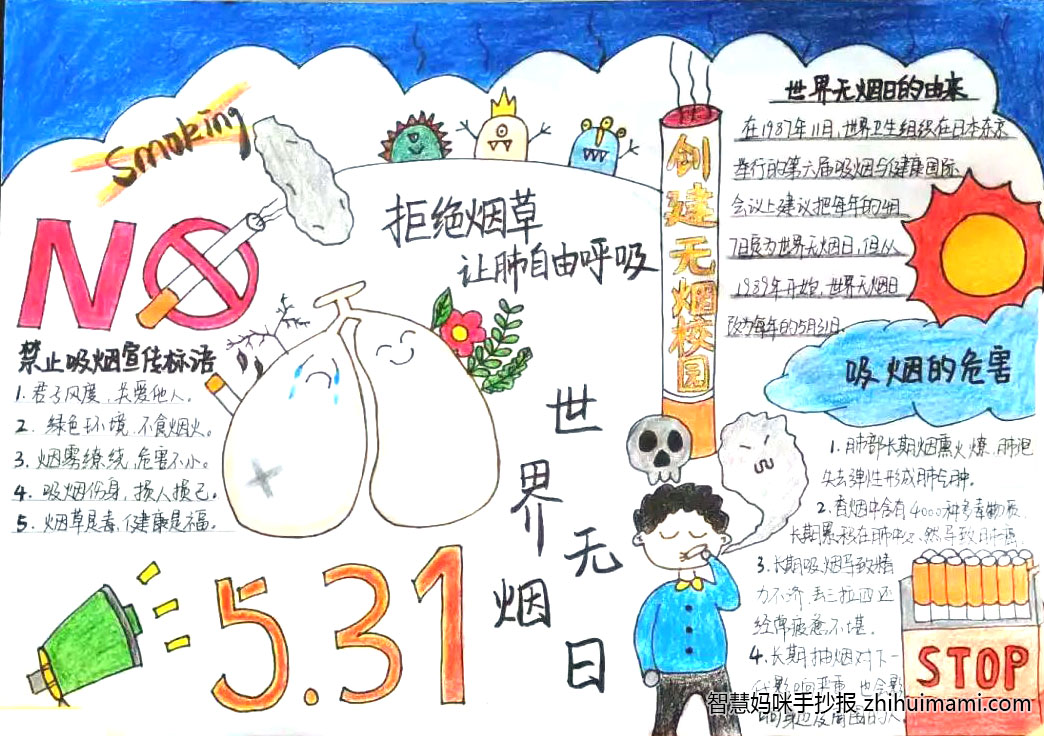 Smoking
NO
拒绝烟草
让肺自由呼吸
创建无烟校园
世界无烟日的由来
在1987年11月,世界卫生组织在日本东京
举行的第六届吸烟与健康国际
会议上建议把每年的4月
7日定为世界无烟日,但从
1989年开始,世界无烟日
改为每年的5月31日.
禁止吸烟宣传标语
1. 君子风度,关爱他人。
2. 绿色环境,不食烟火。
3. 烟雾缭绕,危害不小。
4. 吸烟伤身,损人损己。
5. 烟草是毒,健康是福。
5.31
世界无烟日
吸烟的危害
1. 肺部长期烟熏火燎,肺泡
失去弹性形成肺气肿。
2. 香烟中含有4000种有毒物质,
长期累积在肺中,然导致肺癌
3. 长期吸烟导致精
力不济,丢三拉四还
经常疲惫不堪。
4. 长期抽烟对下一
代影响严重,也会影
响身边及周围的人。
STOP
智慧妈咪手抄报 zhihuimami.com